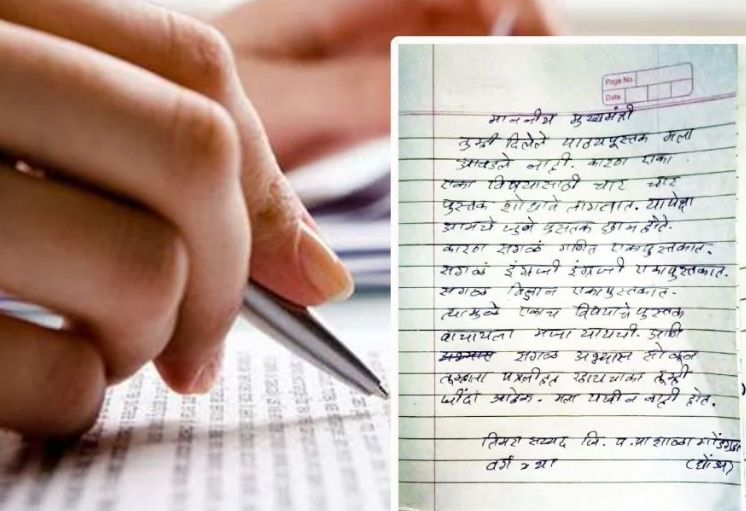 Page No.
Date
माननीय मुख्यमंत्री
तुम्ही दिलेले पाठ्यपुस्तक मला
आवडले नाही. कारण एका
एका विषयासाठी चार चार
पुस्तक शोधावे लागतात. यापेक्षा
आमचे जुने पुस्तक छान होते.
कारण सगळं गणित एकापुस्तकात.
सगळं इंग्रजी इंग्रजी एकापुस्तकात.
सगळं विज्ञान एकापुस्तकात.
त्यामुळे एकाच विषयाचे पुस्तक
वाचायला मजा यायची. आणी
अभ्यास सगळ अभ्यास सोडून
तुम्हाला पत्र
आहेत. मला नाही होत.
सय्यद जि. प. प्रा शाळा
वर्ग